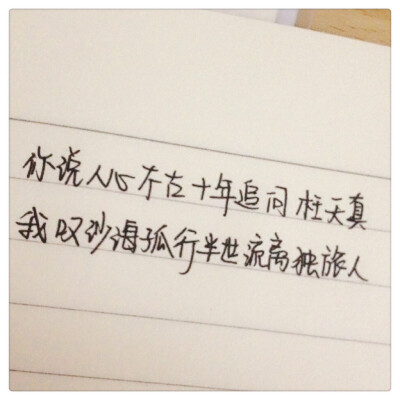 你说人心不古十年追问枉天真
我叹沙海孤行半世流离独旅人